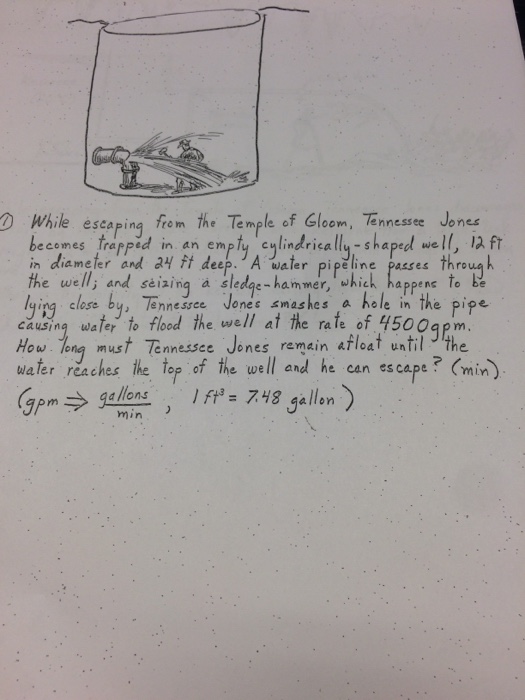 ① While escaping from the Temple of Gloom, Tennessee Jones
becomes trapped in an empty cylindrically-shaped well, 12 ft
in diameter and 24 ft deep. A water pipeline passes through
the well; and seizing a sledge-hammer, which happens to be
lying close by, Tennessee Jones smashes a hole in the pipe
causing water to flood the well at the rate of 4500gpm.
How long must Tennessee Jones remain afloat until the
water reaches the top of the well and he can escape? (min)
(gpm ⇒ gallons/min, 1 ft³ = 7.48 gallon)